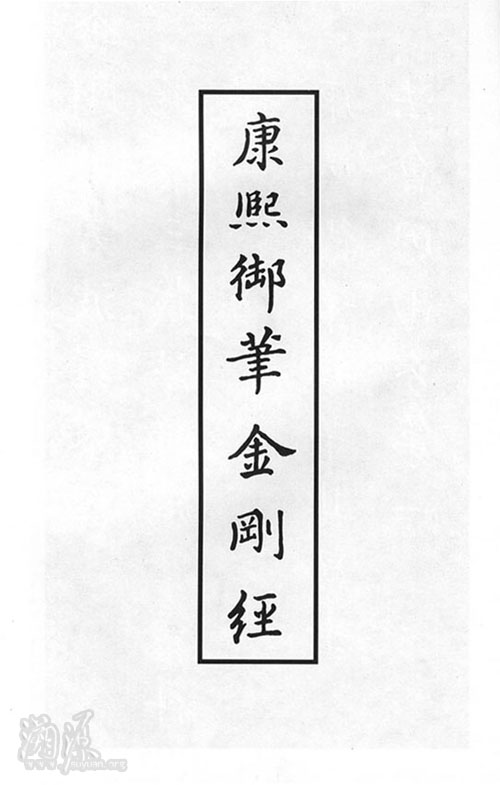 康熙御筆金剛經
溯源
www.suyuan.org